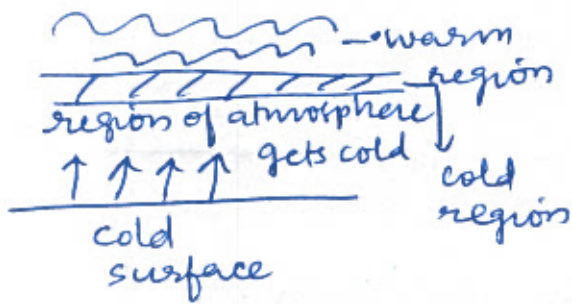 warm
region
region of atmosphere
gets cold
cold
region
cold
surface